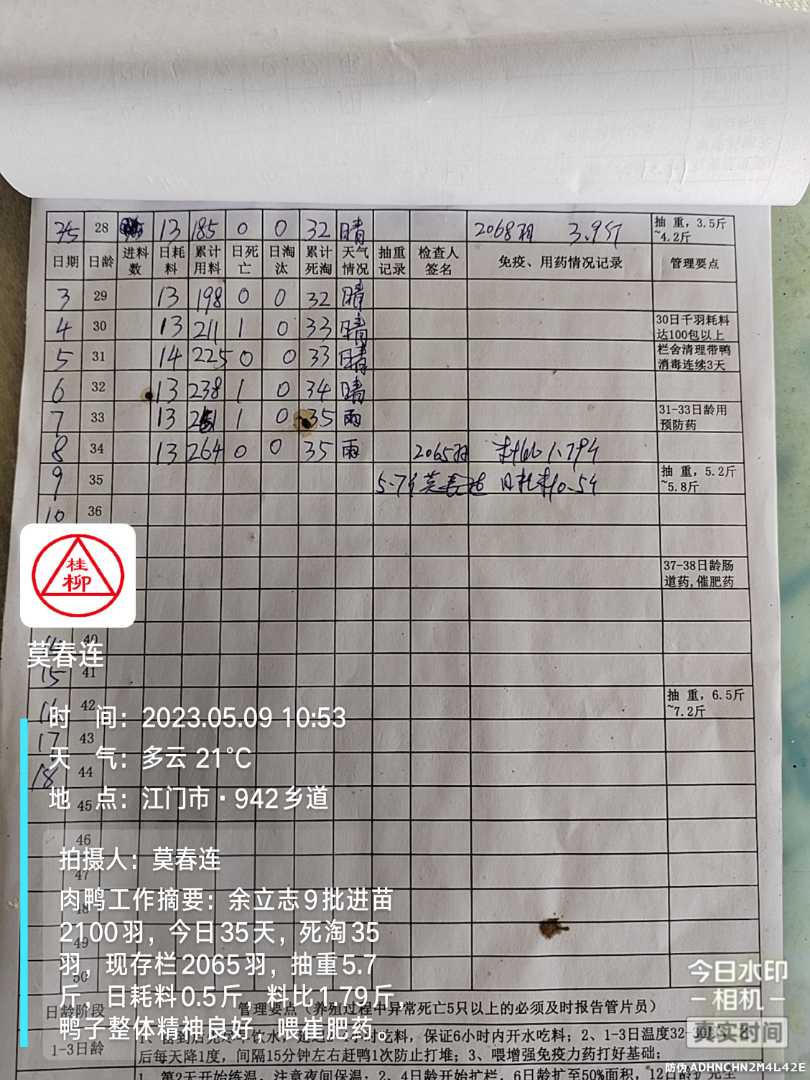 28 13 185 0 0 32 晴 2068羽 3.9斤 抽重，3.5斤
~4.2斤
日期 日龄 进料数 日耗料 累计用料 日死亡 日淘汰 累计死淘 天气情况 抽重记录 检查人签名 免疫、用药情况记录 管理要点
3 29 13 198 0 0 32 晴
4 30 13 211 1 0 33 晴 30日千羽耗料
达100包以上
5 31 14 225 0 0 33 晴 栏舍清理带鸭
消毒连续3天
6 32 13 238 1 0 34 晴
7 33 13 251 1 0 35 雨 31-33日龄用
预防药
8 34 13 264 0 0 35 雨 2065羽 料比1.79斤
9 35 5.7斤 莫春连 日耗料0.5斤 抽重，5.2斤
~5.8斤
10 36
桂
柳
37-38日龄肠
道药,催肥药
40
莫春连
15 41
42 抽重，6.5斤
~7.2斤
时 间：2023.05.09 10:53
17 43
天 气：多云 21℃
18 44
地 点：江门市·942乡道
45
46
拍摄人：莫春连
47
肉鸭工作摘要：余立志9批进苗
2100羽，今日35天，死淘35
49
羽，现存栏2065羽，抽重5.7
50
斤，日耗料0.5斤，料比1.79斤
鸭子整体精神良好，喂崔肥药。
今日水印
相机
真实时间
日龄阶段 管理要点（养殖过程中异常死亡5只以上的必须及时报告管片员）
1-3日龄 吃料，保证6小时内开水吃料；2、1-3日温度32-
后每天降1度，间隔15分钟左右赶鸭1次防止打堆；3、喂增强免疫力药打好基础；
1、第2天开始练温，注意夜间保温；2、4日龄开始扩栏，6日龄扩至50%面积，12日龄扩完全
防伪 ADHNCHN2M4L42E